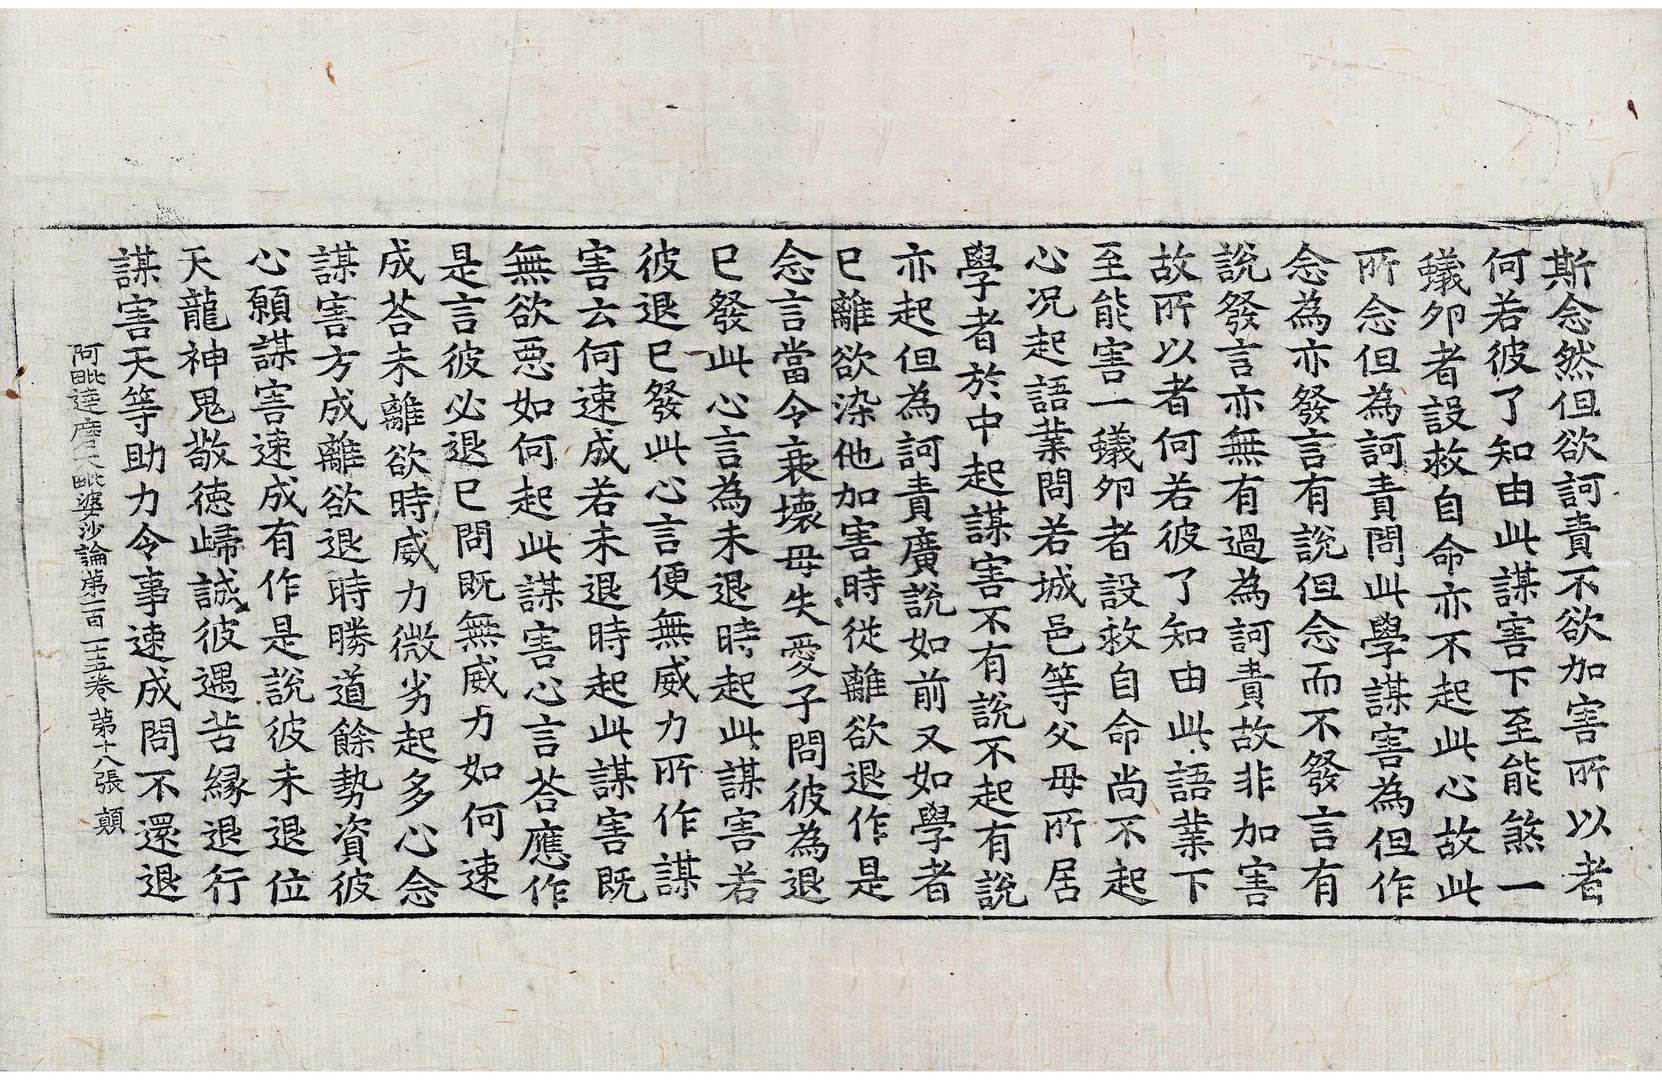 斯念然但欲訶責不欲加害所以者
何若彼了知由此謀害下至能煞一
蟻卵者設救自命亦不起此心故此
所念但為訶責問此學謀害為但作
念為亦發言有說但念而不發言有
說發言亦無有過為訶責故非加害
故所以者何若彼了知由此語業下
至能害一蟻卵者設救自命尚不起
心况起語業問若城邑等父母所居
學者於中起謀害不有說不起有說
亦起但為訶責廣說如前又如學者
已離欲染他加害時從離欲退作是
念言當令衰壞母失愛子問彼為退
已發此心言為未退時起此謀害若
彼退已發此心言便無威力所作謀
害云何速成若未退時起此謀害既
無欲惡如何起此謀害心言荅應作
是言彼必退已問既無威力如何速
成荅未離欲時威力微劣起多心念
謀害方成離欲退時勝道餘勢資彼
心願謀害速成有作是說彼未退位
天龍神鬼敬德歸誠彼遇苦緣退行
謀害天等助力令事速成問不還退
阿毗達磨大毗婆沙論第一百二十五卷 第十八張 顛